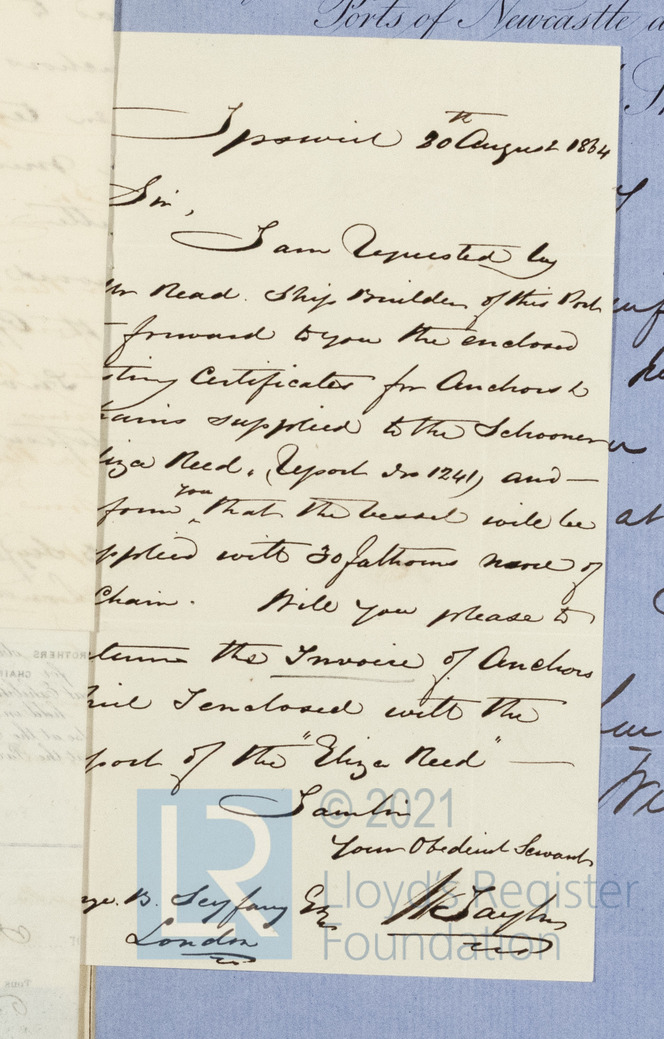 Ports of Newcastle a
Ipswich 30th August 1864
Sir,
I am Requested by
Mr Read. Ship Builder of this Port
forward to you the enclosed
sting Certificates for Anchors &
hains supplied to the Schooner
liza Reed. (Report No 1241) and —
form you that the vessel will be
pplied with 30 fathoms more of
Chain. Will you please to
return the Invoice of Anchors
I enclosed with the
port of the "Eliza Reed" —
I am Sir
Your Obedient Servant
ge. B. Seyfang Esq
London
Taylor
© 2021
LR
Lloyd's Register
Foundation
at
ROTHERS
CHAIN